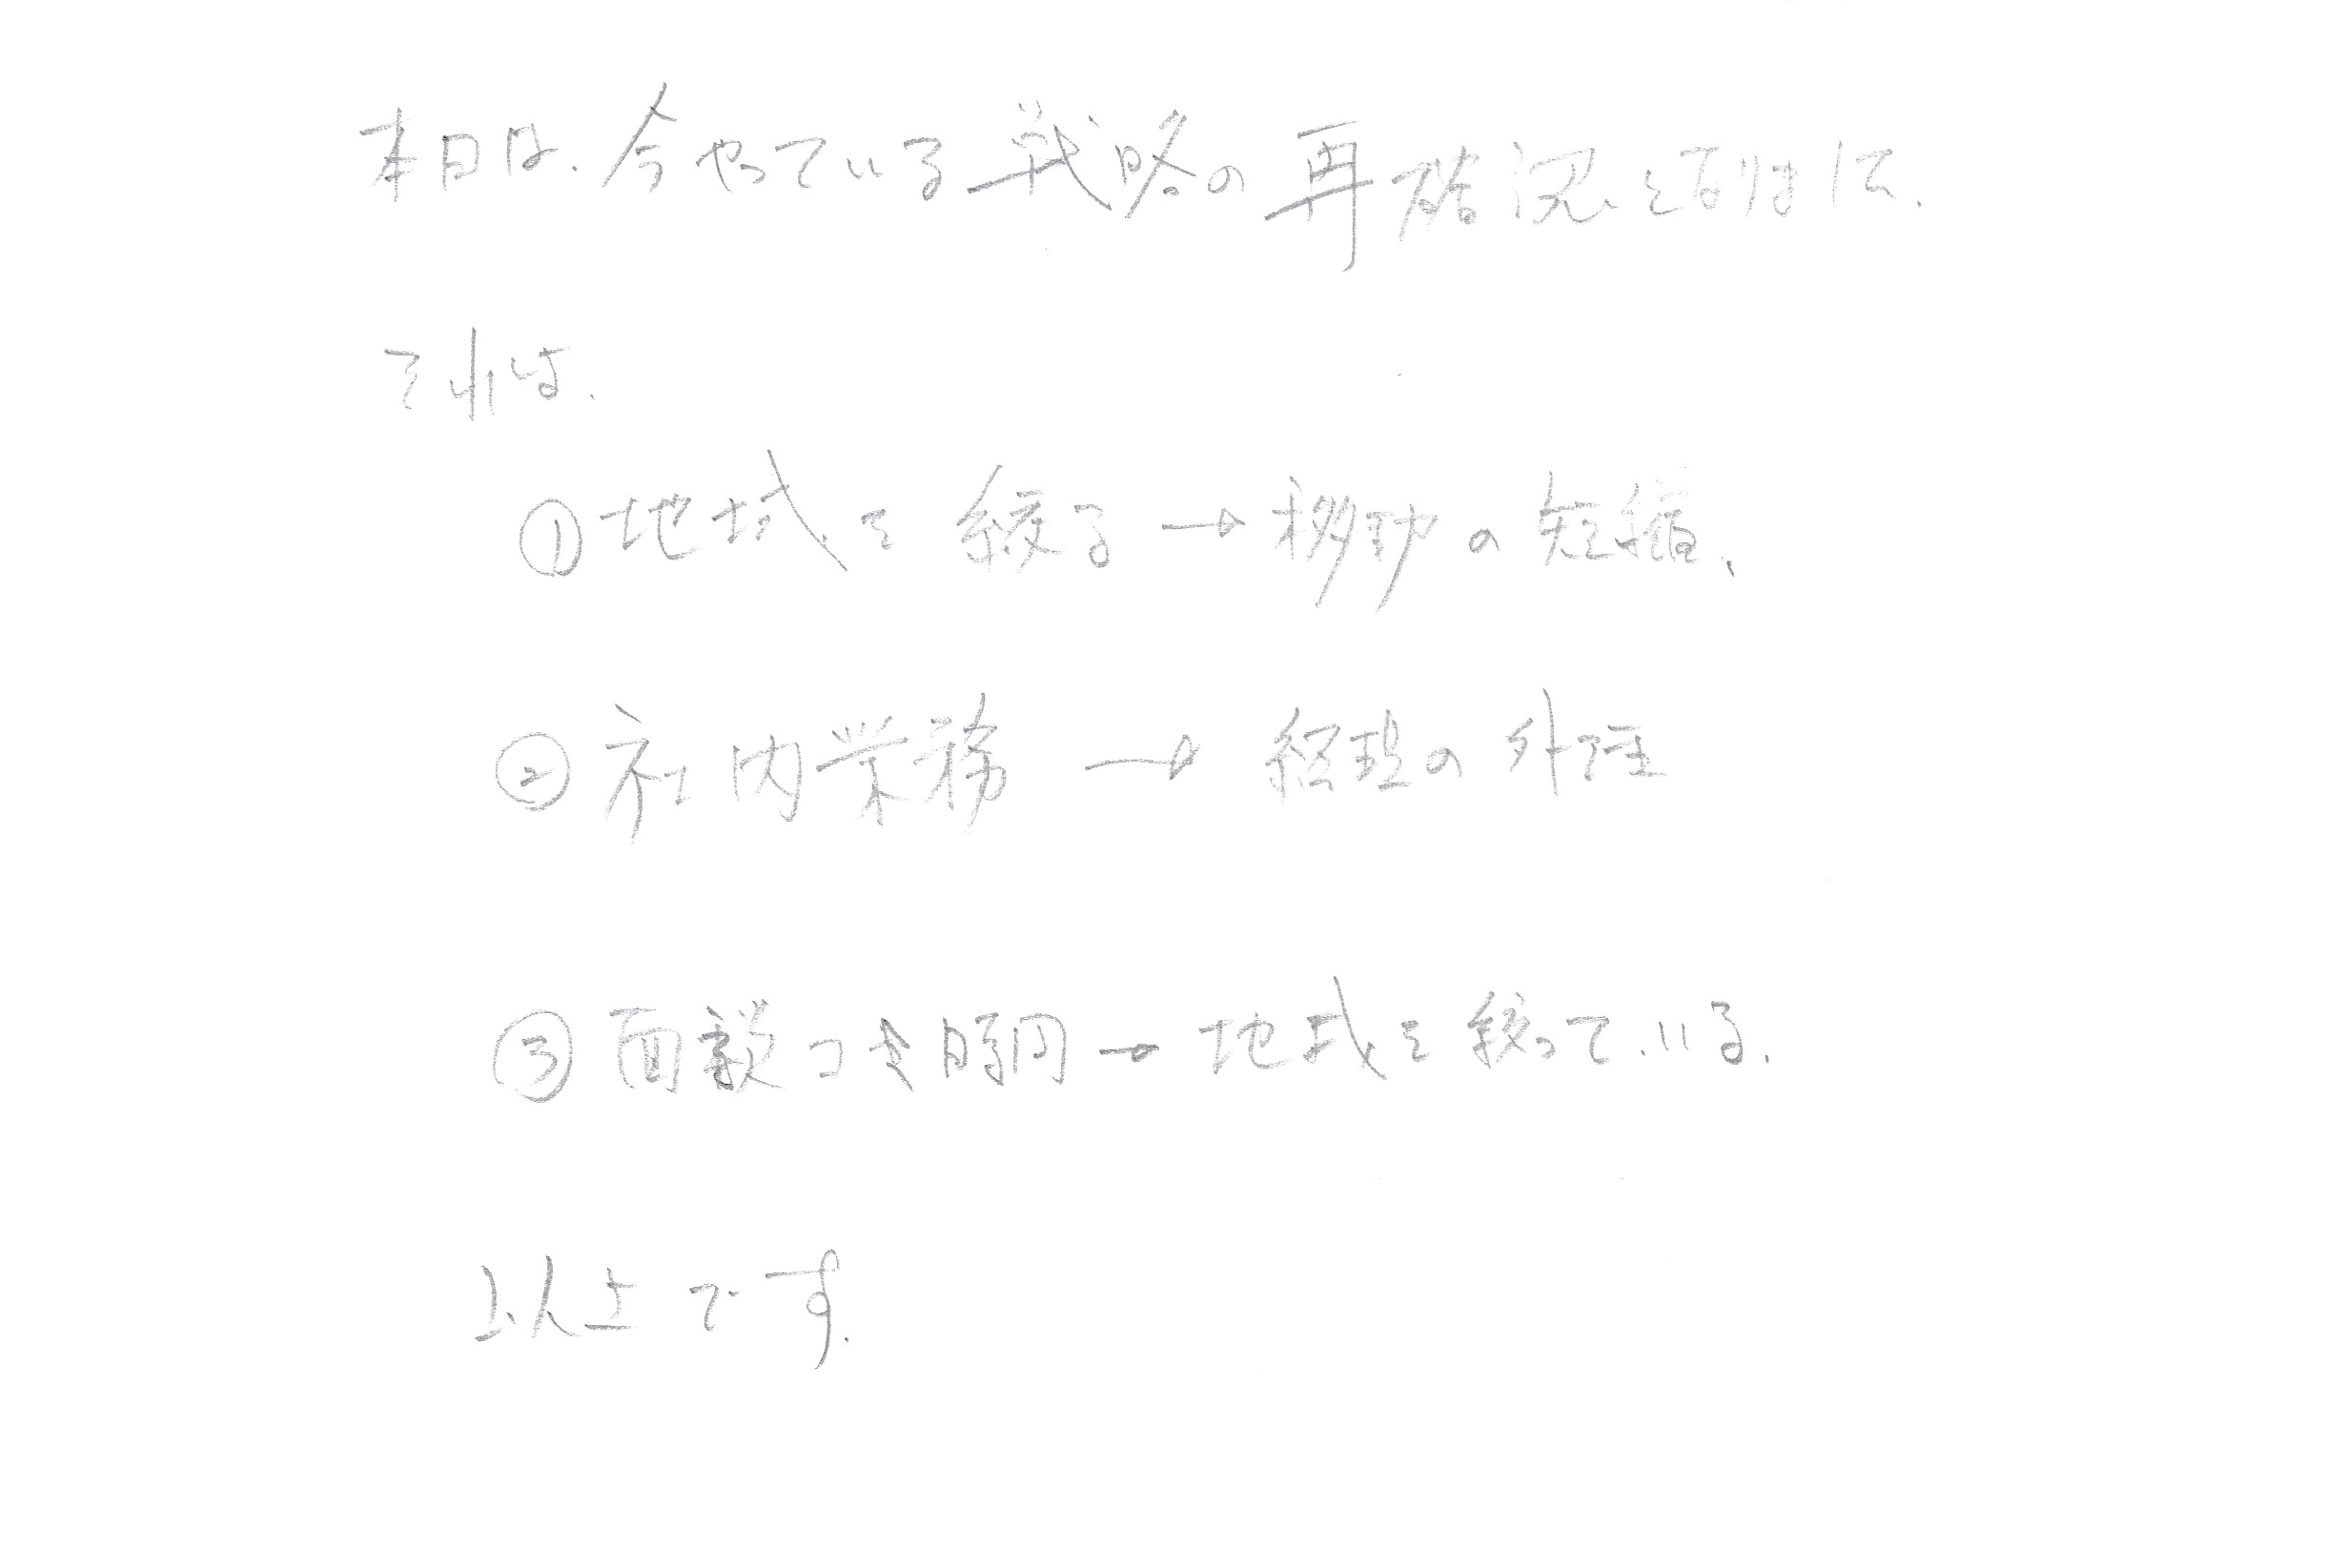 本日は、今やっている戦略の再確認となりまして、
それは、
①地域を絞る→移動の短縮、
②社内業務→経理の外注
③面談つき時間→地域を絞っている。
以上です。